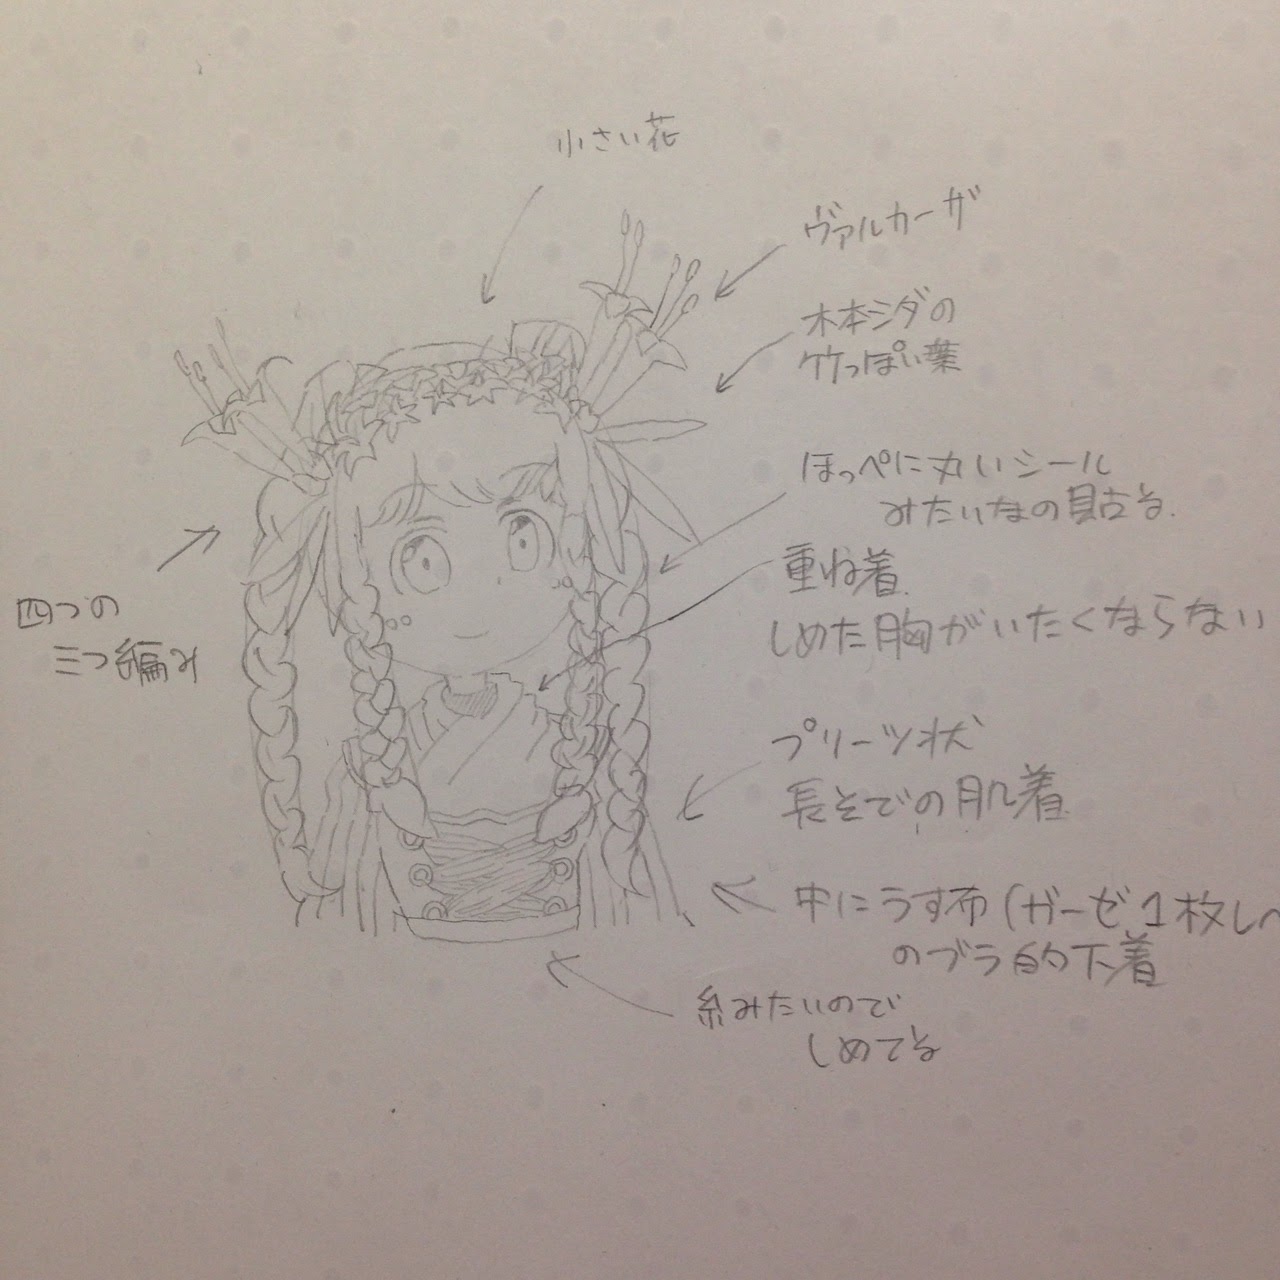 小さい花
ヴァルカーザ
木本シダの
竹っぽい葉
ほっぺに丸いシール
みたいなの貼る.
重ね着.
しめた胸がいたくならない
四つの
三つ編み
プリーツ状
長そでの肌着.
中にうす布(ガーゼ1枚し
のブラ的下着
糸みたいので
しめてる